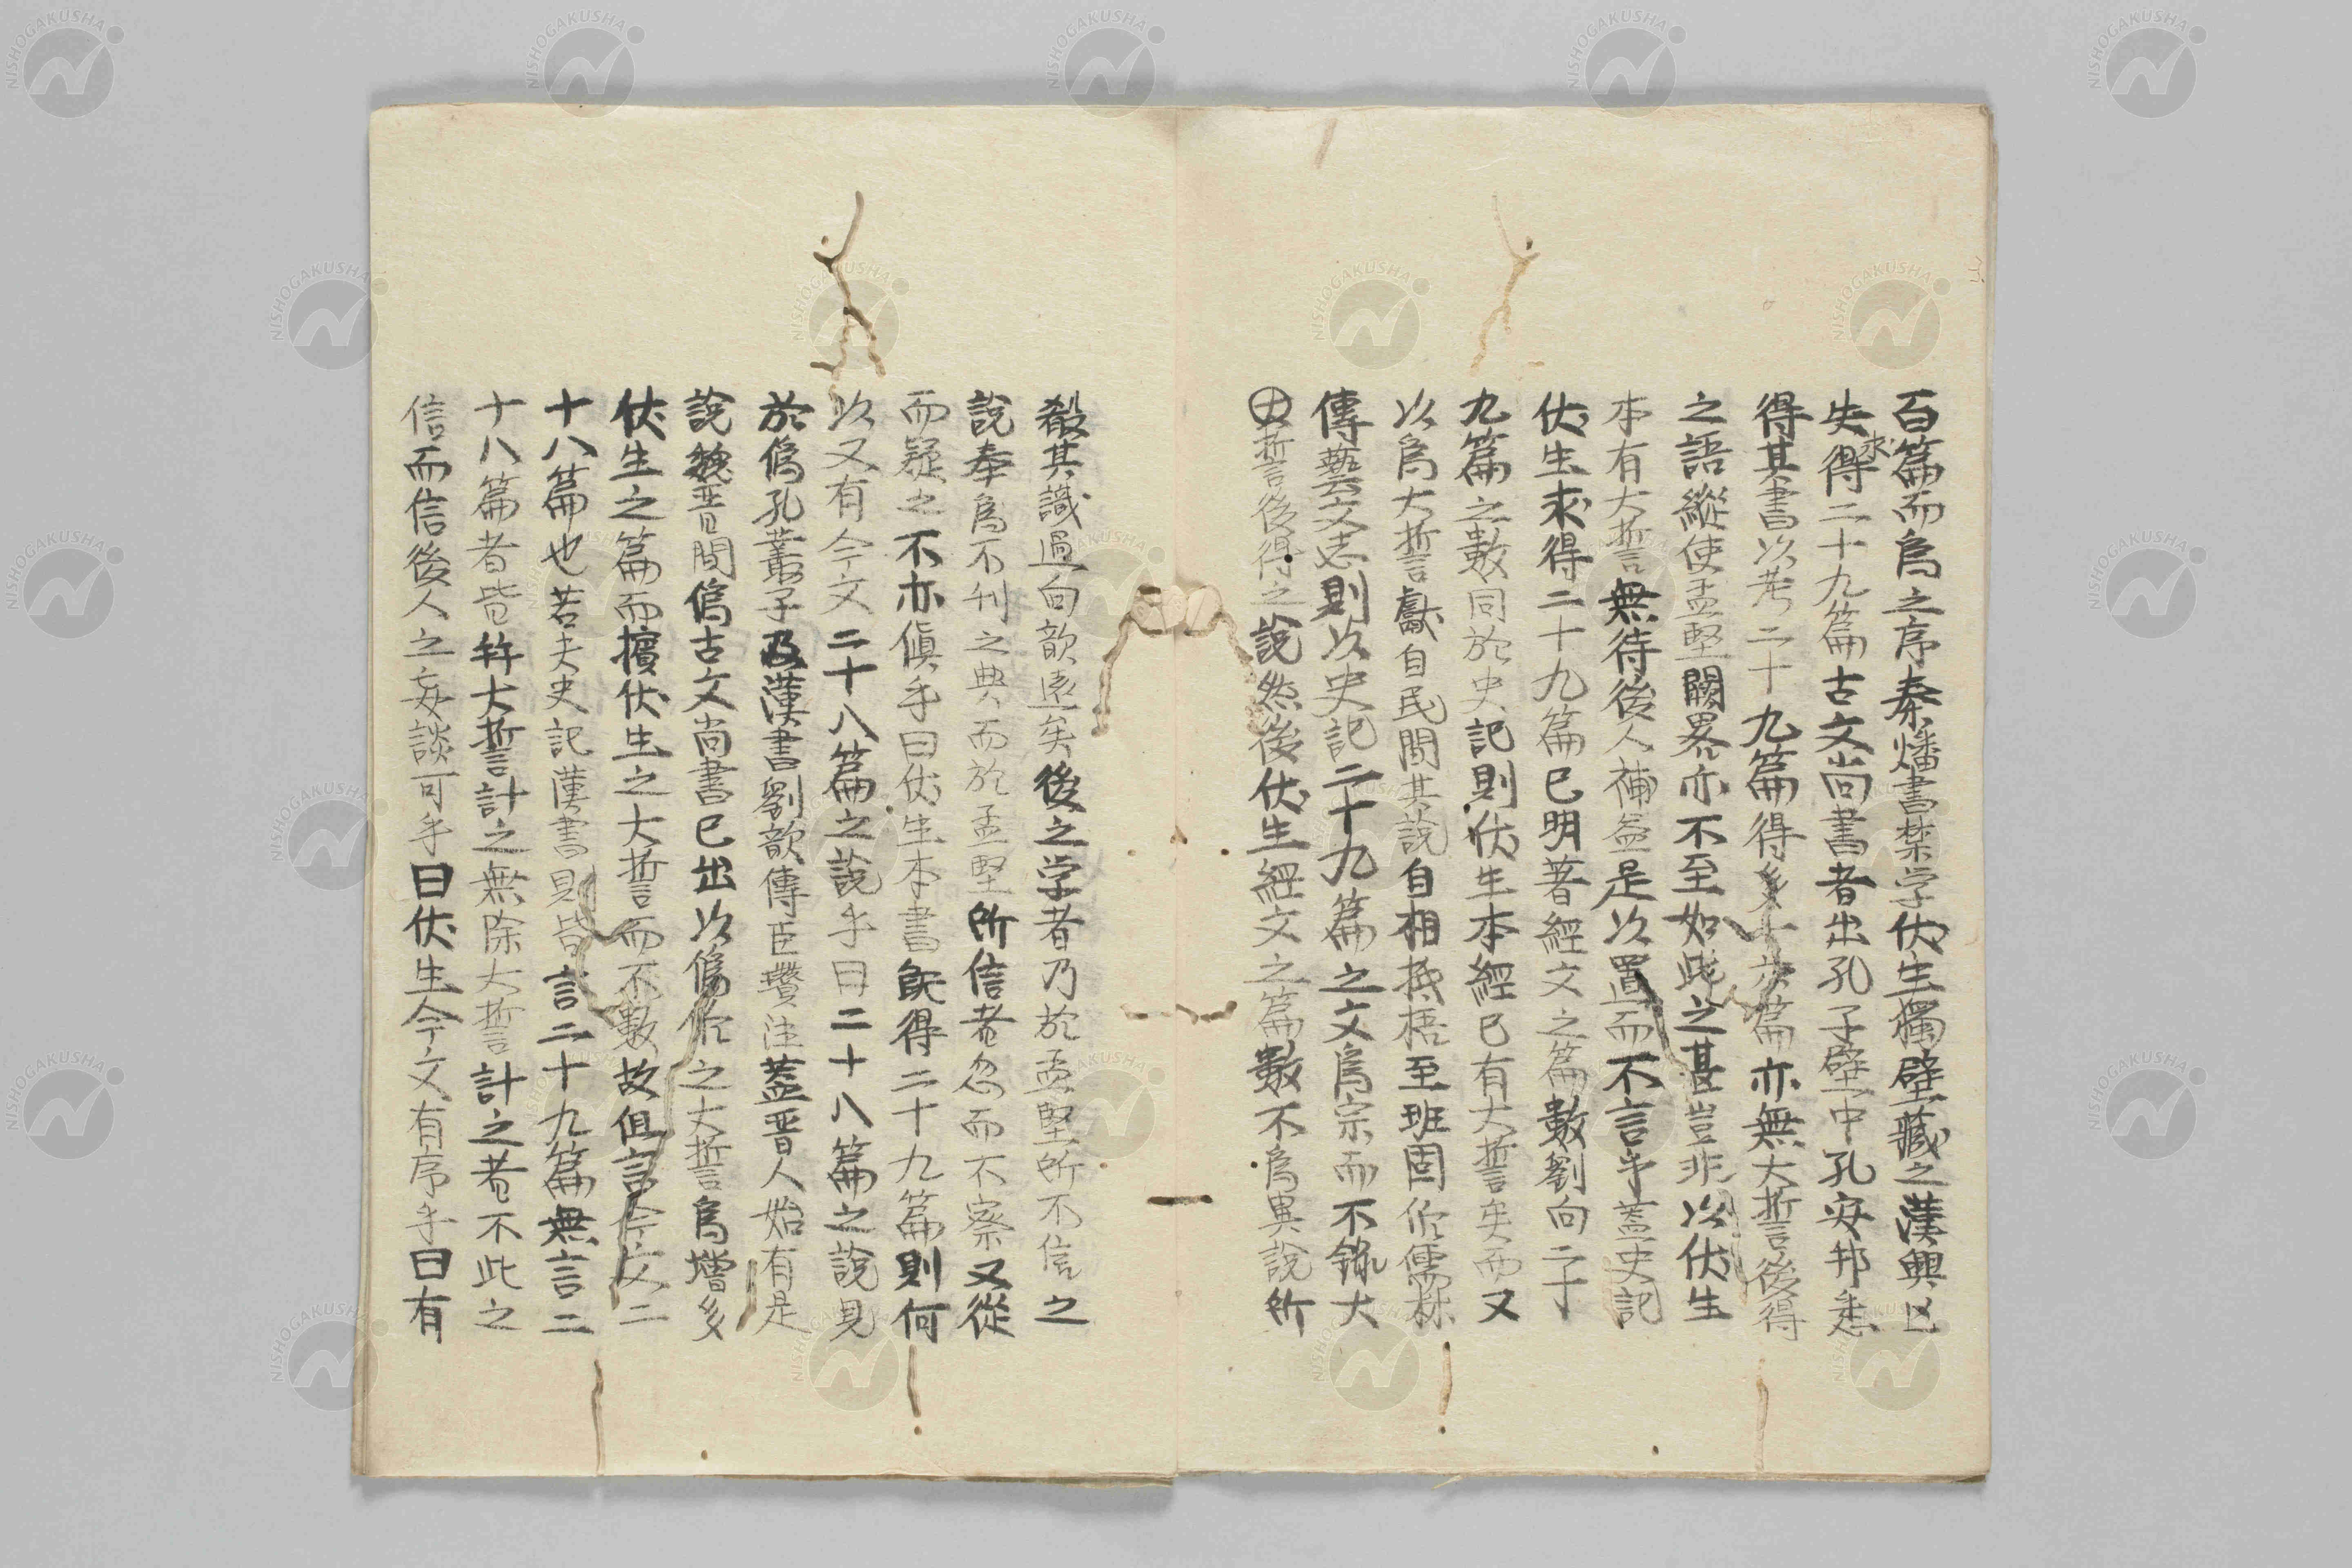 百篇而爲之序秦燔書禁学伏生獨壁藏之漢興亡
失求得二十九篇古文尚書者出孔子壁中孔安邦悉
得其書以考二十九篇得多十六篇亦無大誓後得
之語縱使孟堅闕畧亦不至如此之甚豈非以伏生
本有大誓無待後人補益是以置而不言乎蓋史記
伏生求得二十九篇已明著經文之篇數劉向二子
九篇之數同於史記則伏生本經已有大誓矣而又
以爲大誓獻自民間其說自相抵梧至班固作儒林
傳藝文志則以史記二十九篇之文爲宗而不錄大
誓後得之說然後伏生經文之篇數不爲異說所
殽其識過向歆遠矣後之学者乃於孟堅所不信之
說奉爲不刊之典而於孟堅所信者忽而不察又從
而疑之不亦傎乎曰伏生本書既得二十九篇則何
以又有今文二十八篇之說乎曰二十八篇之說見
於僞孔叢子及漢書劉歆傳臣瓚注蓋晋人始有是
說魏晋間僞古文尚書已出以僞作之大誓爲增多
伏生之篇而擯伏生之大誓而不數故但言今文二
十八篇也若夫史記漢書則皆言二十九篇無言二
十八篇者皆幷大誓計之無除大誓計之者不此之
信而信後人之妄談可乎曰伏生今文有序乎曰有
NISHOGAKUSHA